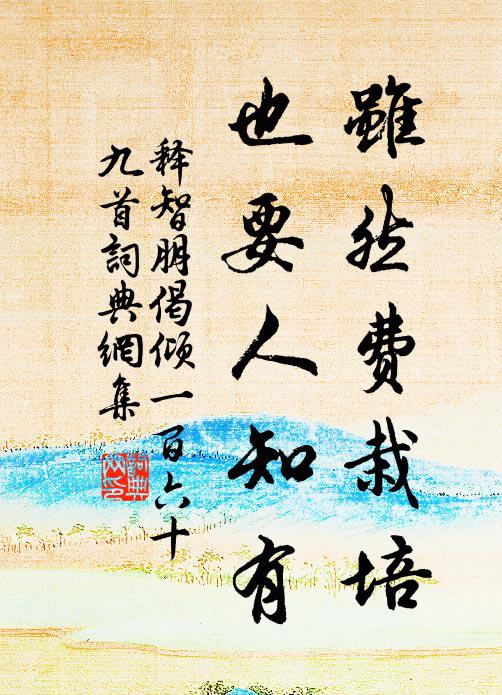 雖然費栽培
也要人知有
释智朋偈倾一百六十
九首詞典網集